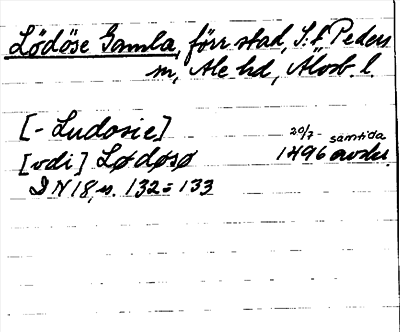 Lödöse Gamla, förr stad, S:t Peders
sn, Ale hd, Älvsb. l.
[- Ludosie]
20/7 samtida
[vdi] Lødøsø 1496 avskr.
DN 18, s. 132-133